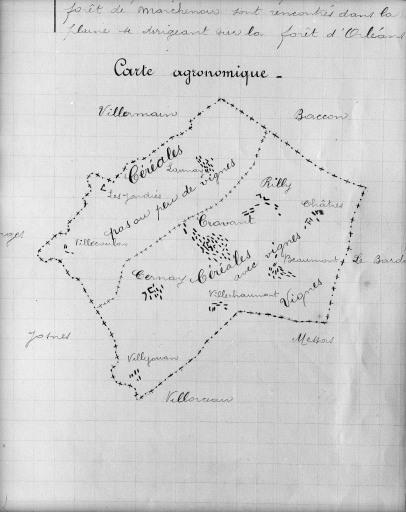 forêt de Marchenoir sont rencontrés dans la
plaine se dirigeant sur la forêt d'Orléans
Carte agronomique -
Villermain
Baccon
Céréales
Launay
pas ou peu de vignes
Rilly
Les Jandiés
Châtres
Cravant
Villecoulon
Beaumont
Le Bardon
Cernay
Céréales avec vignes
Villechaumont
Vignes
Josnes
Messas
Villejouan
Villorceau